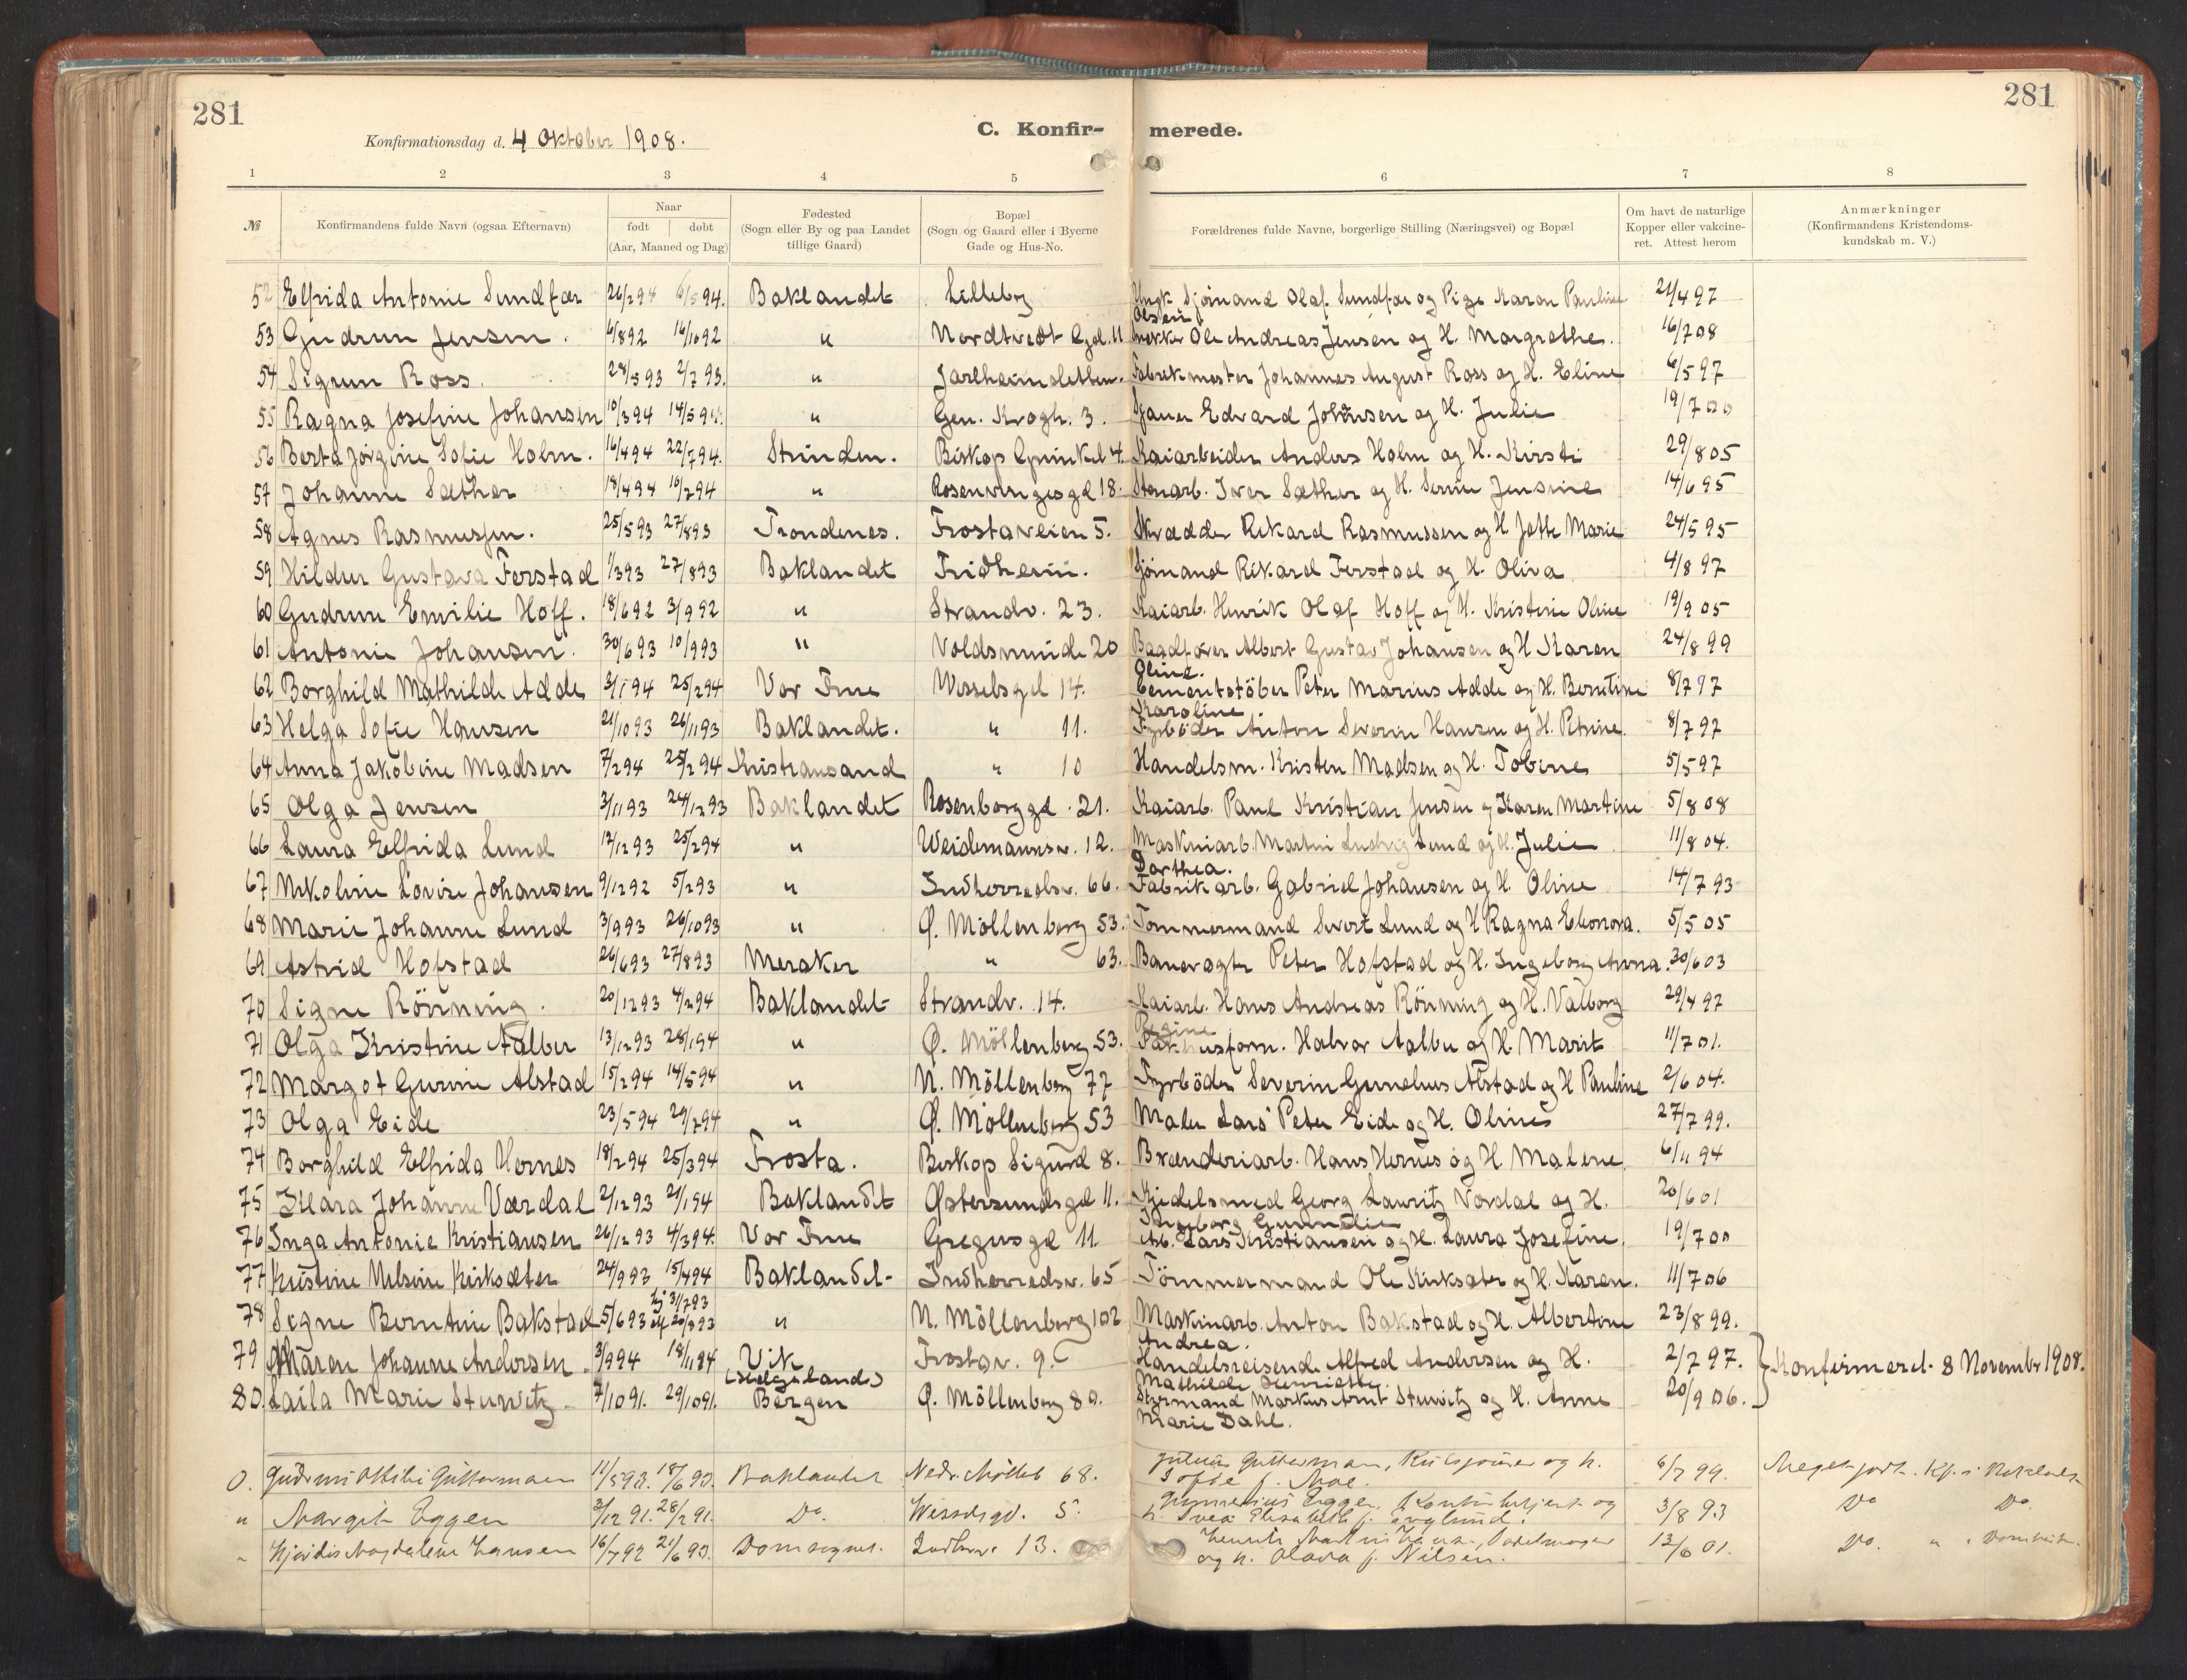 281
281
Konfirmationsdag d. 4 Oktober 1908.
C. Konfir-
merede.
1 2 3 4 5 6 7 8
№ Konfirmandens fulde Navn (ogsaa Efternavn) Naar født døbt (Aar, Maaned og Dag) Fødested (Sogn eller By og paa Landet tillige Gaard) Bopæl (Sogn og Gaard eller i Byerne Gade og Hus-No. Forældrenes fulde Navne, borgerlige Stilling (Næringsvei) og Bopæl Om havt de naturlige Kopper eller vakcine-ret. Attest herom Anmærkninger (Konfirmandens Kristendoms-kundskab m. V.)
52 Elfrida Antonie Sundfær 26/2 94 6/5 94. Baklandet Lilleby Ungk Sjømand Olaf Sundfær og Pige Karen Pauline 21/4 97
Olsen
53 Gudrun Jensen. 6/8 92 16/10 92 " Nordtvedt Gjd. 11 Ole Andreas Jensen og H. Margrethe. 16/7 08
54 Sigrun Ross. 28/5 93 2/7 93. " Jarlheimsletten. Fabrikmester Johannes August Ross og H. Eline 6/5 97
55 Ragna Josefine Johansen 10/3 94 14/5 94. " Gen. Krogh. 3. Edvard Johansen og H. Julie 19/7 00
56 Berta Jörgine Sofie Holm. 16/4 94 22/7 94. Strinden. Biskop Grimkel 4. Kaiarbeider Anders Holm og H. Kirsti 29/8 05
57 Johanne Sæther 18/4 94 10/7 94 " Rosenvingesgd 18. Stenarb. Iver Sæther og H. Jensine 14/6 95
58 Agnes Rasmussen. 25/5 93 27/8 93 Trondenes. Frostaveien 5. Skrædder Rikard Rasmussen og H Jette Marie 24/5 95
59 Hildur Gustava Ferstad 1/3 93 27/8 93 Baklandet Fridheim. Sjömand Rikard Ferstad og H. Oliva 4/8 97
60 Gudrun Emilie Hoff. 18/6 92 3/9 92 " Strandv. 23. Kaiarb. Henrik Olaf Hoff og H. Kristine Oline 19/9 05
61 Antonie Johansen. 30/6 93 10/9 93 " Voldsminde 20 Baadfører Albert Gustav Johansen og H Karen 24/8 99
Oline.
62 Borghild Mathilde Adde 3/1 94 25/2 94 Vor Frue Wesselsgd 14. Cementstöber Peter Marius Adde og H. Berntine 8/7 97
Karoline
63 Helga Sofie Hansen 21/10 93 26/11 93 Baklandet. " 11. Fyrböder Anton Severin Hansen og H. Petrine. 8/7 97
64 Anna Jakobine Madsen 7/2 94 25/2 94 Kristiansand " 10 Handelsm. Kristen Madsen og H. Tobine 5/5 97
65 Olga Jensen 3/11 93 24/12 93 Baklandet Rosenborg gd. 21. Kaiarb. Paul Kristian Jensen og Karen Martine 5/8 08
66 Laura Elfrida Lund 12/12 93 25/2 94 " Weidemannsv. 12. Maskinarb. Martin Ludvig Lund og H. Julie 11/8 04.
Dorthea.
67 Nikoline Lovise Johansen 9/12 92 5/2 93 " Indherredsv. 66. Fabrikarb. Gabriel Johansen og H. Oline 14/7 93
68 Marie Johanne Lund 3/9 93 26/10 93 " Ø. Möllenberg 53. Tommermand Sivert Lund og H Ragna Eleonora. 5/5 05
69 Astrid Hofstad 26/6 93 27/8 93 Meraker " 63. Banevogter Peter Hofstad og H. Ingeborg Anna. 30/6 03
70 Signe Rönning. 20/12 93 4/2 94 Baklandet Strandv. 14. Kaiarb. Hans Andreas Rönning og H. Valborg 29/4 97
Regine
71 Olga Kristine Aalbu 13/12 93 28/1 94 " Ø. Möllenberg 53. Pakhusform. Halvor Aalbu og H. Marit 11/7 01.
72 Margot Gurine Alstad 15/2 94 14/5 94 " N. Möllenberg 77 Fyrböder Severin Gunelius Alstad og H Pauline 2/6 04.
73 Olga Eide 23/5 94 29/7 94 " Ø. Möllenberg 53 Maler Lars Peter Eide og H. Oline 27/7 99.
74 Borghild Elfrida Hernes 18/2 94 25/3 94 Frosta. Biskop Sigurd 8. Brænderiarb. Hans Hernes og H Malene. 6/11 94
75 Klara Johanne Værdal 2/12 93 21/1 94 Baklandet Østersundsgd 11. Kjedelsmed Georg Lauritz Værdal og H. 20/6 01
Ingeborg Gunnelie
76 Inga Antonie Kristiansen 26/12 93 4/3 94. Vor Frue Gregusgd 11 Arb. Lars Kristiansen og H. Laura Josefine. 19/7 00
77 Kristine Nelsine Kirksæter 24/9 93 15/4 94 Baklandet Indherredsv. 65 Tömmermand Ole Kirksæter og H. Karen. 11/7 06
78 Signe Berntine Bakstad 5/6 93 hj 31/7 93 20/8 93 " N. Möllenberg 102 Maskinarb. Anton Bakstad og H. Albertine 23/8 99.
Andrea.
79 Maren Johanne Andersen. 3/9 94 18/11 94 Vik (Helgeland) Frostav. 9. Handelsreisende Alfred Andersen og H. 2/7 97.
Mathilde Henriette. } Konfirmeret 8 November 1908.
80. Laila Marie Stuwitz. 7/10 91. 29/10 91. Bergen Ø. Möllenberg 80. Styrmand Markus Arnt Stuwitz og H. Anne 20/9 06.
Marie Dahl.
0. Gudrun Ottilie Guttormsen 11/5 93. 18/6 93. Baklandet Nedr. Mölleb 68. Julius Guttormsen, og h. 6/7 99. Meget godt. Kf. i Baklandet
Sofie f. Moe.
" Margit Eggen 3/12 91. 28/2 91. Do. Wesselsgd. 5. Eggen, Kontorbetjent og 3/8 93 Do Do.
h. Svea Elisabeth f. Englund.
" Hjördis Magdalene Hansen 16/7 92 21/6 93. Domsognet. Indherr. 13. Henrik Martin Hansen, 13/6 01. Do. "
og h. Olava f. Nilsen.